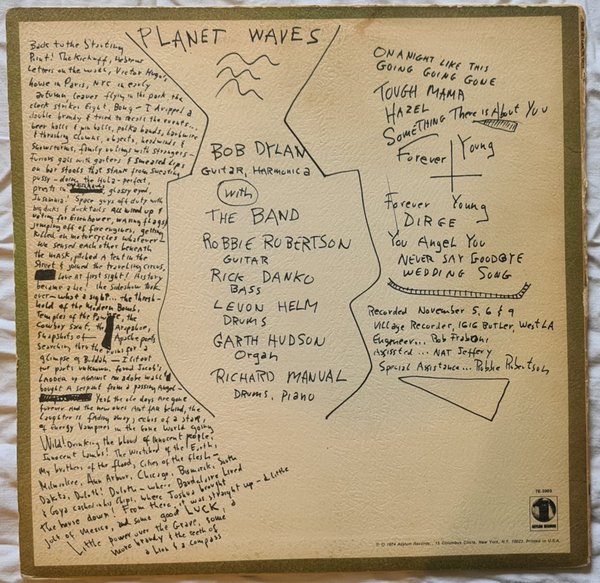 PLANET WAVES
Back to the Starting
Point! The Kickoff, Hebrew
Letters on the walls, Victor Hugo's
house in Paris, NYC in early
autumn leaves flying in the park, the
clock strikes Eight, Bong - I dropped a
double brandy & tried to recall the events...
beer halls & pin balls, polka bands, barbwire
& thrashing clowns, objects, headwinds &
snowstorms, family outings with strangers -
furious gals with garters & smeared lips
on bar stools that stank from sweating
pussy - doing the Hula - perfect,
priests in overhauls, glassy eyed,
Insomnia! Space guys off duty with
big dicks & ducktails All wired up &
voting for Eisenhower, waving flags &
jumping off of fire engines, getting
killed on motorcycles whatever -
We sensed each other beneath
the MASK, pitched a tent in the
Street & joined the traveling circus,
Love at first sight! History
became a Lie! the sideshow took
over - what a sight... the thresh-
hold of the Modern Bomb,
Temples of the Pawnee, the
Cowboy Saint, the Arapahoe,
Snapshots of Apache poets
Searching thru the ruins for a
glimpse of Buddah - I lit out
for parts unknown, found Jacob's
Ladder up against an adobe wall &
bought A serpent from a passing Angel -
Yeah the old days are gone
forever and the new ones Aint far behind, the
Laughter is fading away, echos of a star,
of Energy Vampires in the Gone World going
Wild! Drinking the blood of innocent people,
Innocent Lambs! The Wretched of the Earth,
My brothers of the flood, Cities of the flesh -
Milwaukee, Ann Arbor, Chicago, Bismarck, South
Dakota, Duluth! Duluth - where Baudelaire Lived
& Goya cashed in his Chips, where Joshua brought
the house down! From there, it was straight up - a little
jolt of Mexico, and some good LUCK, a
Little power over the Grave, some
more brandy & the teeth of
a Lion & a compass
BOB DYLAN
GUITAR, HARMONICA
with
THE BAND
ROBBIE ROBERTSON
GUITAR
RICK DANKO
BASS
LEVON HELM
DRUMS
GARTH HUDSON
Organ
RICHARD MANUAL
DRUMS, PIANO
ON A NIGHT LIKE THIS
GOING GOING GONE
TOUGH MAMA
HAZEL
SOMETHING There is About You
Forever Young
Forever Young
DIRGE
You Angel You
NEVER SAY GOODBYE
WEDDING SONG
Recorded November 5, 6 & 9
Village Recorder, 1616 Butler, West LA
Engineer... Rob Fraboni
Assisted... NAT Jeffery
Special Assistance... Robbie Robertson
7E-1003
ASYLUM RECORDS
℗ © 1974 Asylum Records, 15 Columbus Circle, New York, N.Y. 10023. Printed in U.S.A.